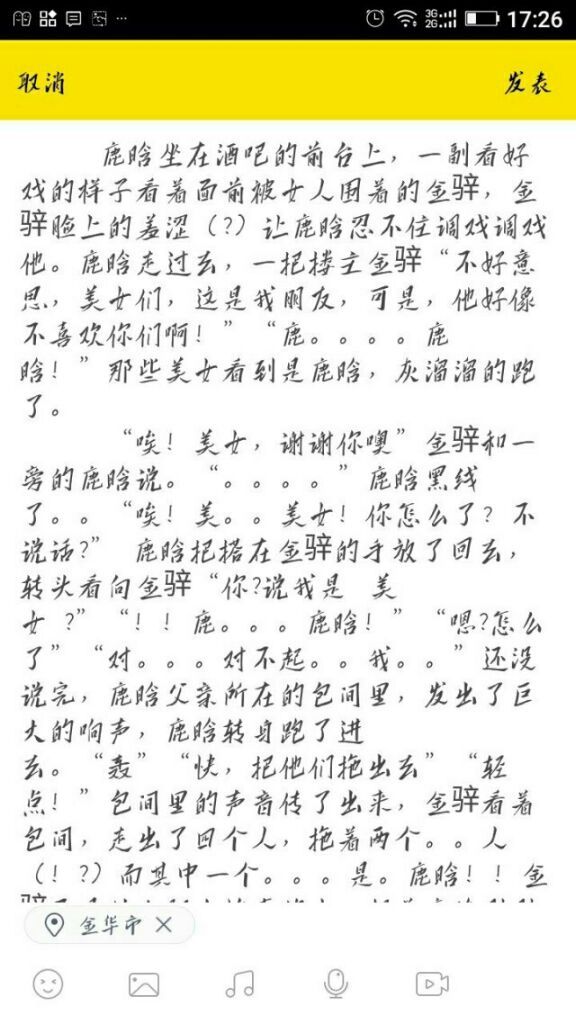 3G
2G
17:26
取消
发表
鹿晗坐在酒吧的前台上，一副看好
戏的样子看着面前被女人围着的金骍，金
骍脸上的羞涩（?）让鹿晗忍不住调戏调戏
他。鹿晗走过去，一把搂主金骍“不好意
思，美女们，这是我朋友，可是，他好像
不喜欢你们啊！”“鹿。。。。鹿
晗！”那些美女看到是鹿晗，灰溜溜的跑
了。
“唉！美女，谢谢你噢”金骍和一
旁的鹿晗说。“。。。。”鹿晗黑线
了。。“唉！美。。美女！你怎么了？不
说话?” 鹿晗把搭在金骍的手放了回去，
转头看向金骍“你?说我是 美
女 ?”“！！鹿。。。鹿晗！”“嗯?怎么
了”“对。。。对不起。。我。。”还没
说完，鹿晗父亲所在的包间里，发出了巨
大的响声，鹿晗转身跑了进
去。“轰”“快，把他们拖出去”“轻
点！”包间里的声音传了出来，金骍看着
包间，走出了四个人，拖着两个。。人
（！?）而其中一个。。。是。鹿晗！！金
金华市